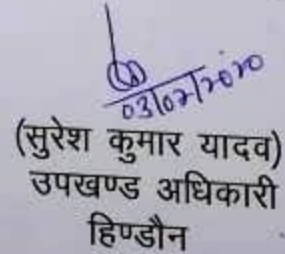 03/07/2020
(सुरेश कुमार यादव)
उपखण्ड अधिकारी
हिण्डौन